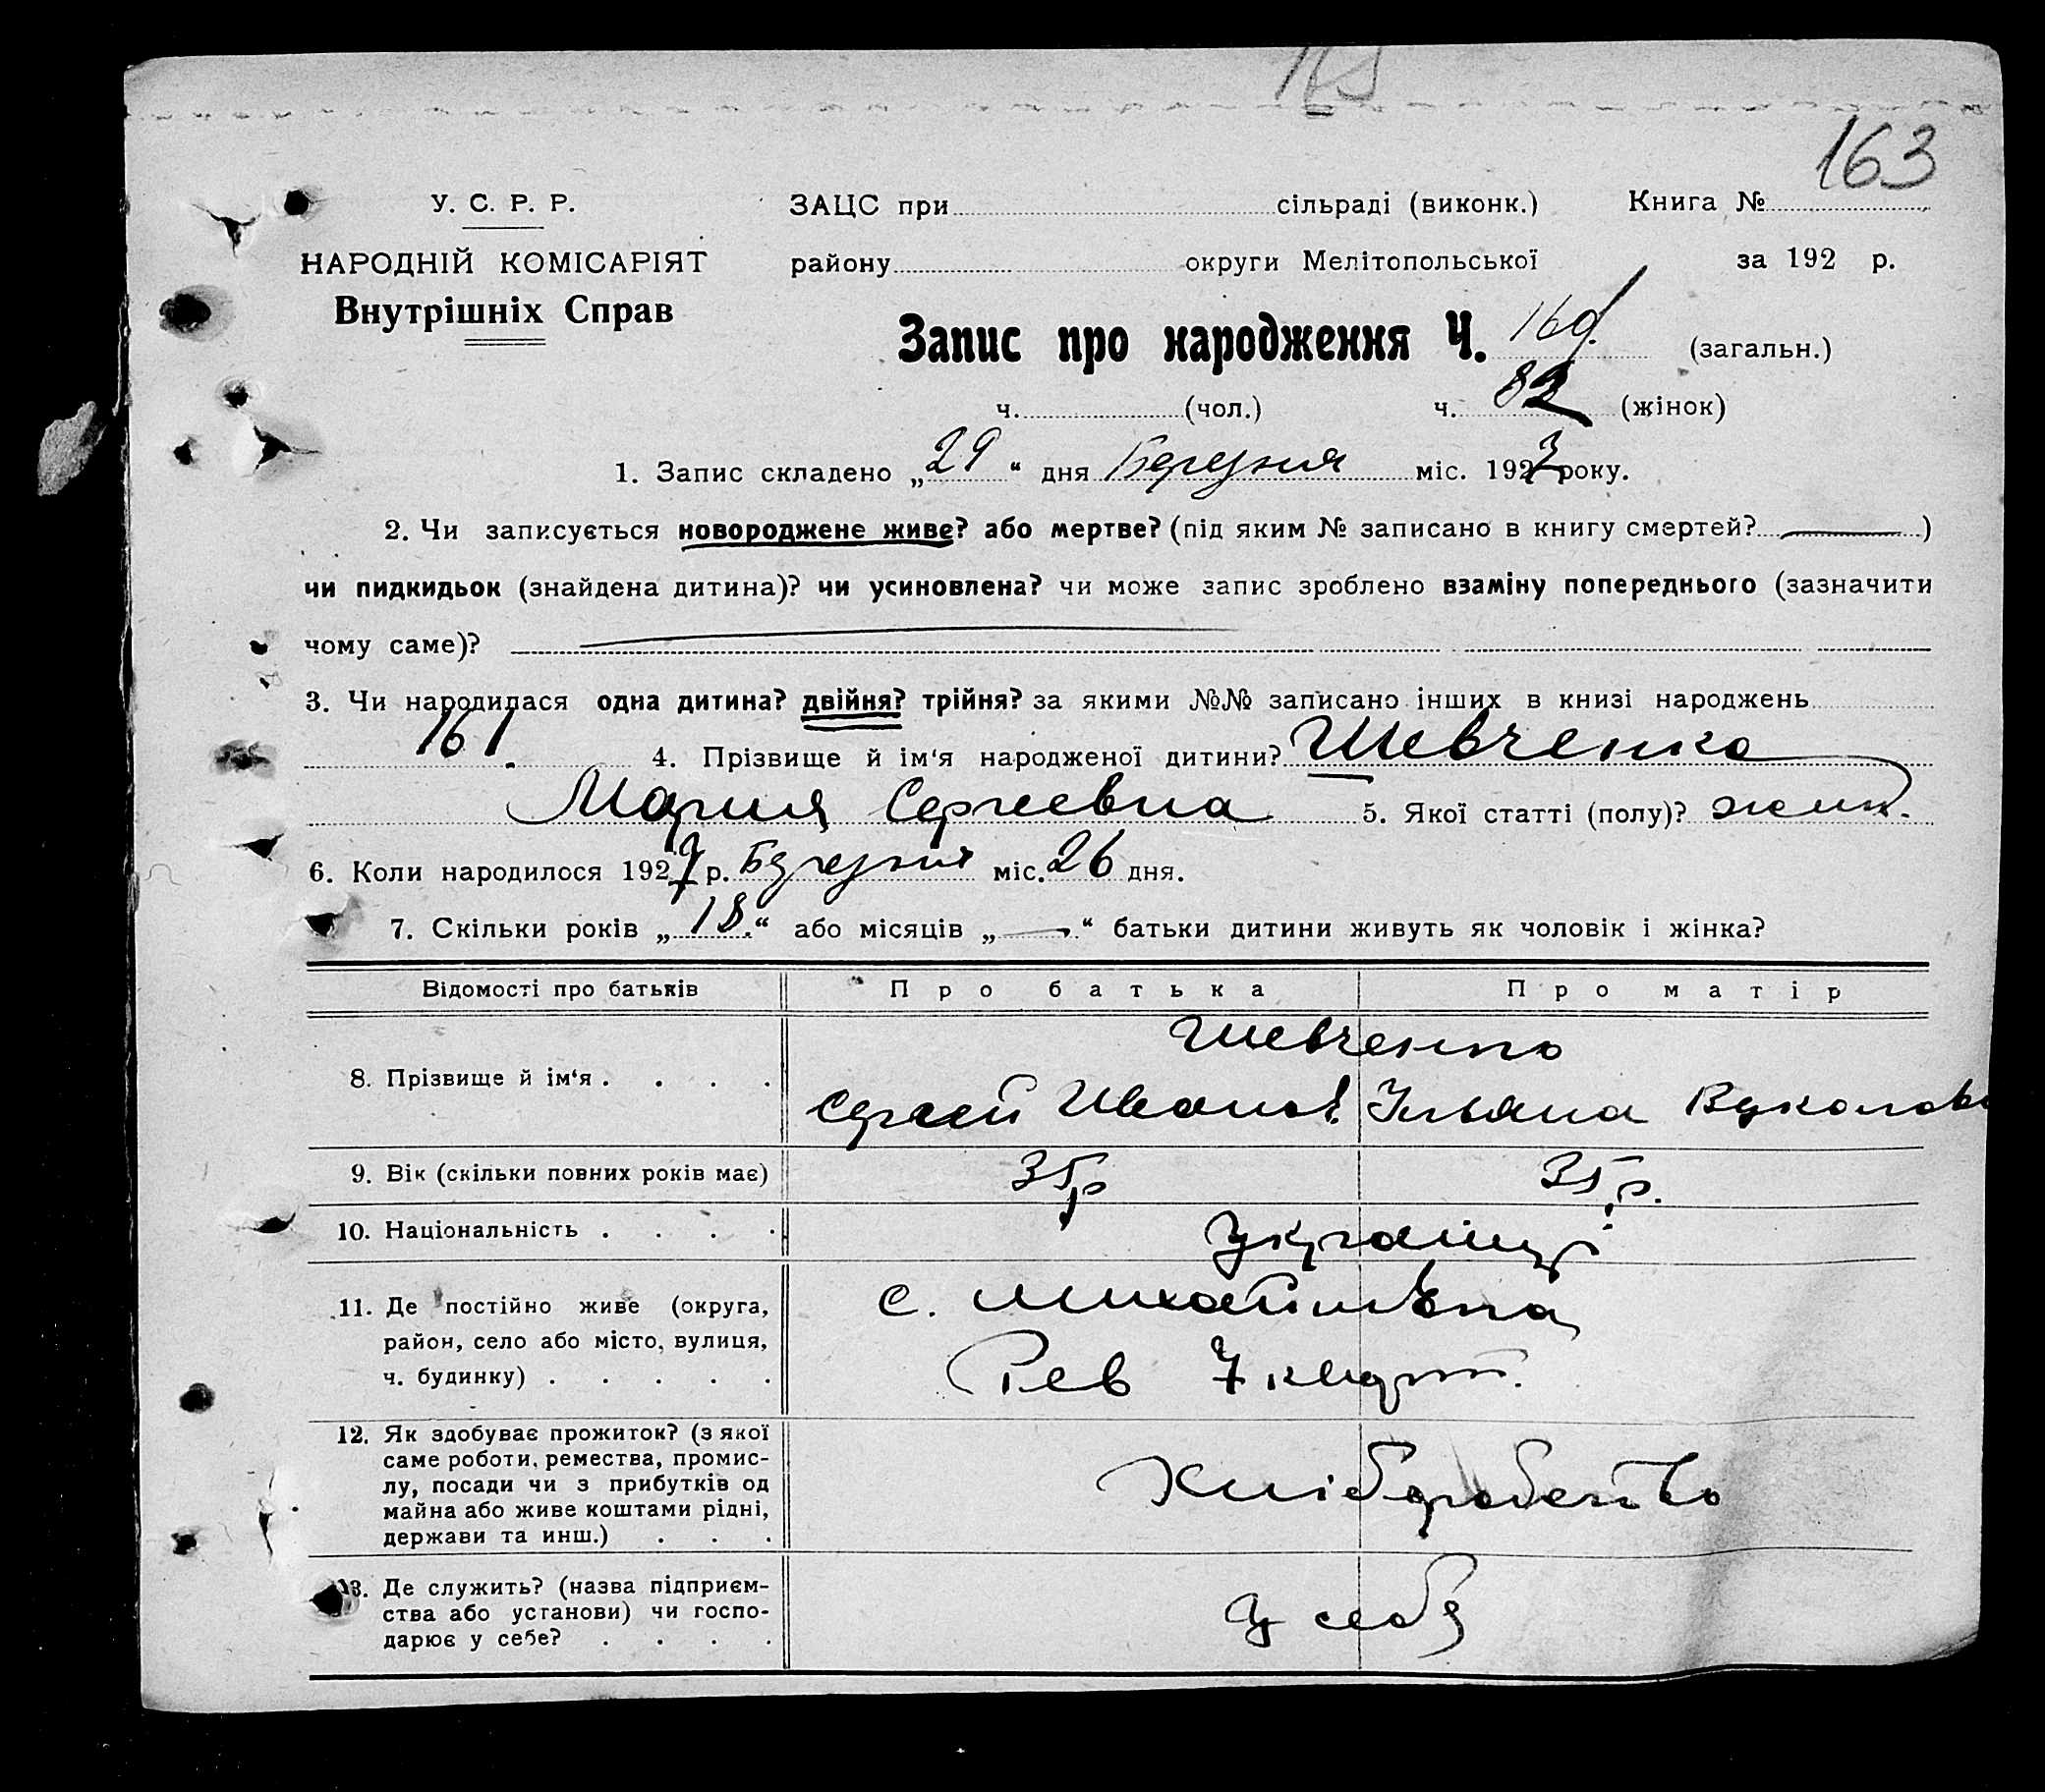 163
У. С. Р. Р.
ЗАЦС при сільраді (виконк.) Книга №
НАРОДНІЙ КОМІСАРІЯТ
району округи Мелітопольської за 192 р.
Внутрішніх Справ
Запис про народження Ч. 160. (загальн.)
ч. (чол.) ч. 82 (жінок)
1. Запис складено „29“ дня Березня міс. 1927 року.
2. Чи записується новороджене живе? або мертве? (під яким № записано в книгу смертей? — )
чи пидкидьок (знайдена дитина)? чи усиновлена? чи може запис зроблено взаміну попереднього (зазначити
чому саме)?
3. Чи народилася одна дитина? двійня? трійня? за якими №№ записано інших в книзі народжень
161. 4. Прізвище й ім‘я народженої дитини? Шевченко
Мария Сергеевна 5. Якої статті (полу)? жин.
6. Коли народилося 1927 р. Березня міс. 26 дня.
7. Скільки років „18.“ або місяців „—“ батьки дитини живуть як чоловік і жінка?
Відомості про батьків Про батька Про матір
Шевченко
8. Прізвище й ім‘я . . . .
Сергей Иванов. Ульяна Вуколов
9. Вік (скільки повних років має) 35 р 35 р.
10. Національність . . . . Українці
11. Де постійно живе (округа, с. Михайлівка
район, село або місто, вулиця,
ч. будинку) . . . . . Рев 7 кварт.
12. Як здобуває прожиток? (з якої
саме роботи, ремества, промис-
лу, посади чи з прибутків од Хліборобство
майна або живе коштами рідні,
держави та инш.) . . .
13. Де служить? (назва підприєм-
ства або установи) чи госпо- У себя
дарює у себе? . . . .